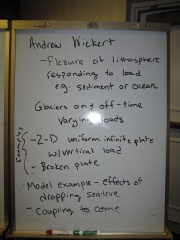 Andrew Wickert
- Flexure of lithosphere
responding to load
e.g. sediment or ocean
Glaciers and off-time
varying loads
Examples
- 2-D uniform infinite plate
w/ vertical load
- Broken plate
Model example - effects of
dropping sea-level
- Coupling to come